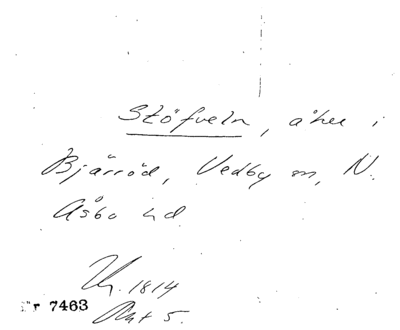 Stöfveln, åker i
Bjärröd, Vedby sn, N.
Åsbo hd
1814
Akt 5.
Nr 7463